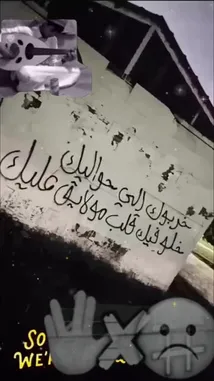 خربوك الي حواليك
خلو فيك قلب مو لايق عليك
SO
WE'R